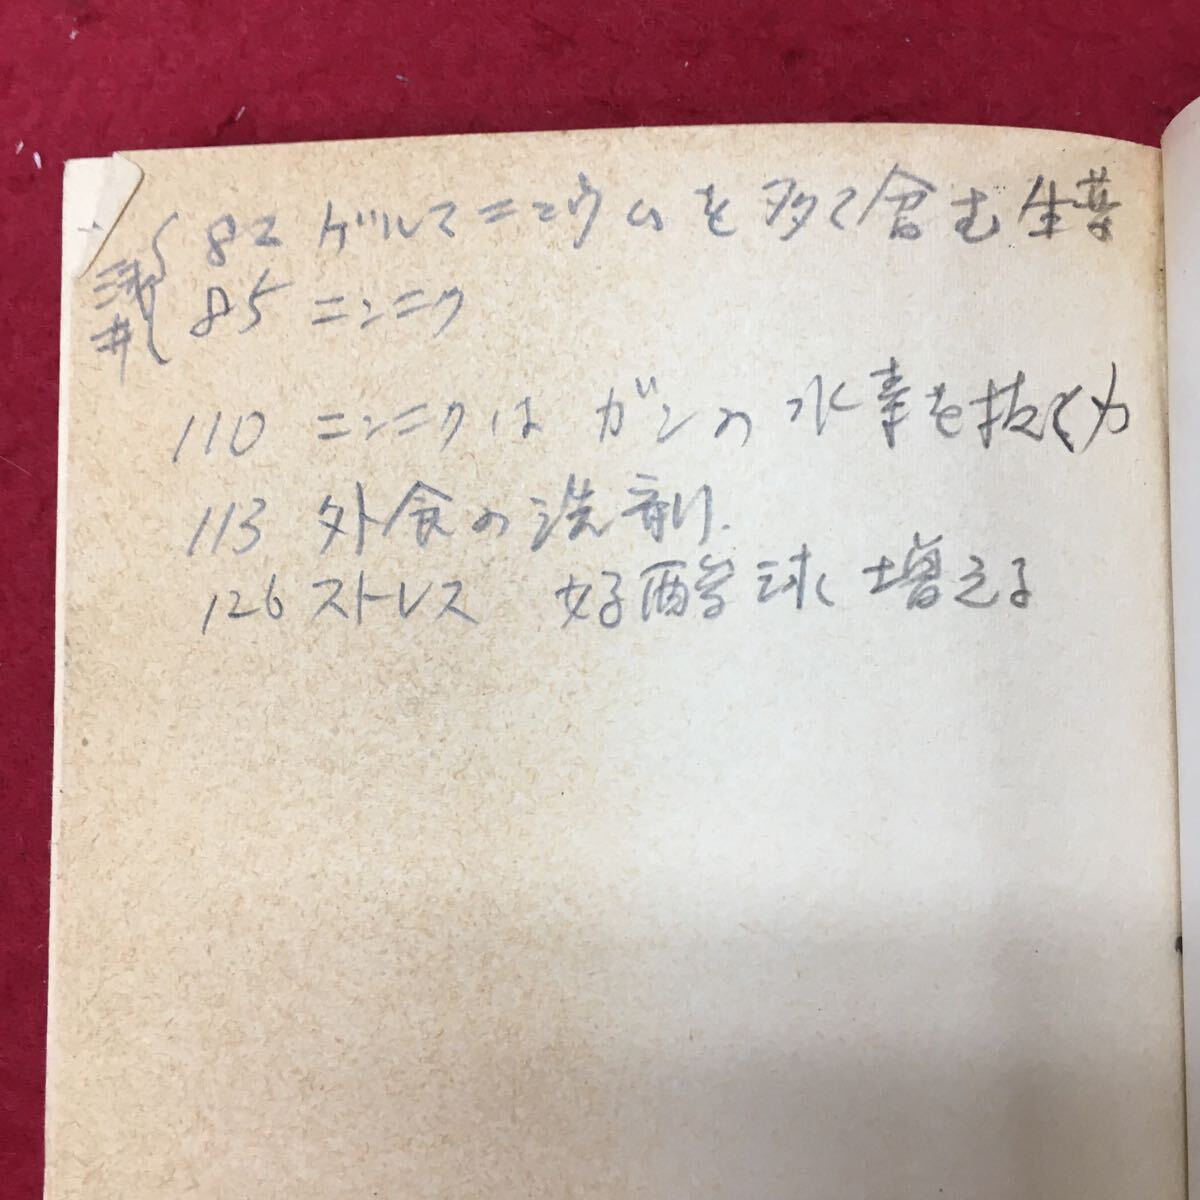 浅井 { 82 ゲルマニュウムを多く含む生薬
85 ニンニク
110 ニンニクは ガンの水素を抜く力
113 外食の洗剤.
126 ストレス 好酸球 増える